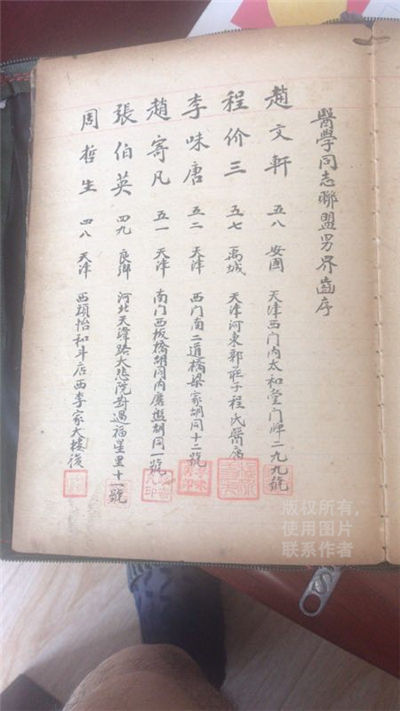 醫學同志聯盟男界齒序
趙文軒 五八 安國 天津西门內太和堂门牌二九九號
程价三 五七 禹城 天津河東郭莊子程氏醫店
李味唐 五二 天津 西门南二道橋梁家胡同十二號
趙寄凡 五一 天津 南门西板橋胡同內磨盤胡同一號
張伯英 四九 良鄉 河北天津路大悲院對過福星里十一號
周哲生 四八 天津 西頭怡和斗店西李家大樓後
版权所有，
使用图片
联系作者